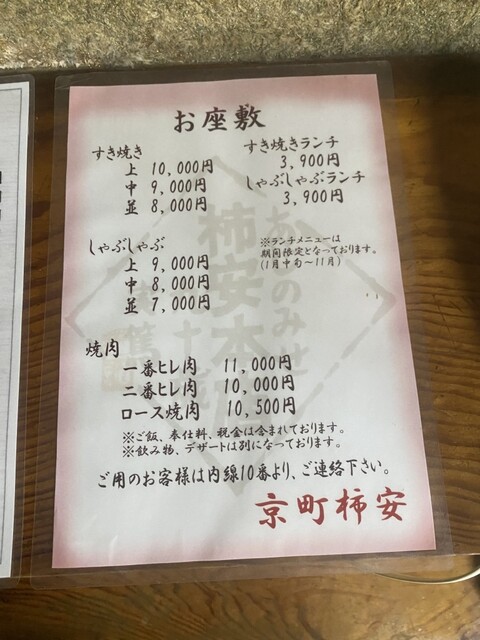 お座敷
すき焼き
上 10,000円
中 9,000円
並 8,000円
すき焼きランチ
3,900円
しゃぶしゃぶランチ
3,900円
※ランチメニューは
期間限定となっております。
(1月中旬~11月)
しゃぶしゃぶ
上 9,000円
中 8,000円
並 7,000円
焼肉
一番ヒレ肉 11,000円
二番ヒレ肉 10,000円
ロース焼肉 10,500円
※ご飯、奉仕料、税金は含まれております。
※飲み物、デザートは別になっております。
ご用のお客様は内線10番より、ご連絡下さい。
京町柿安
柿安本